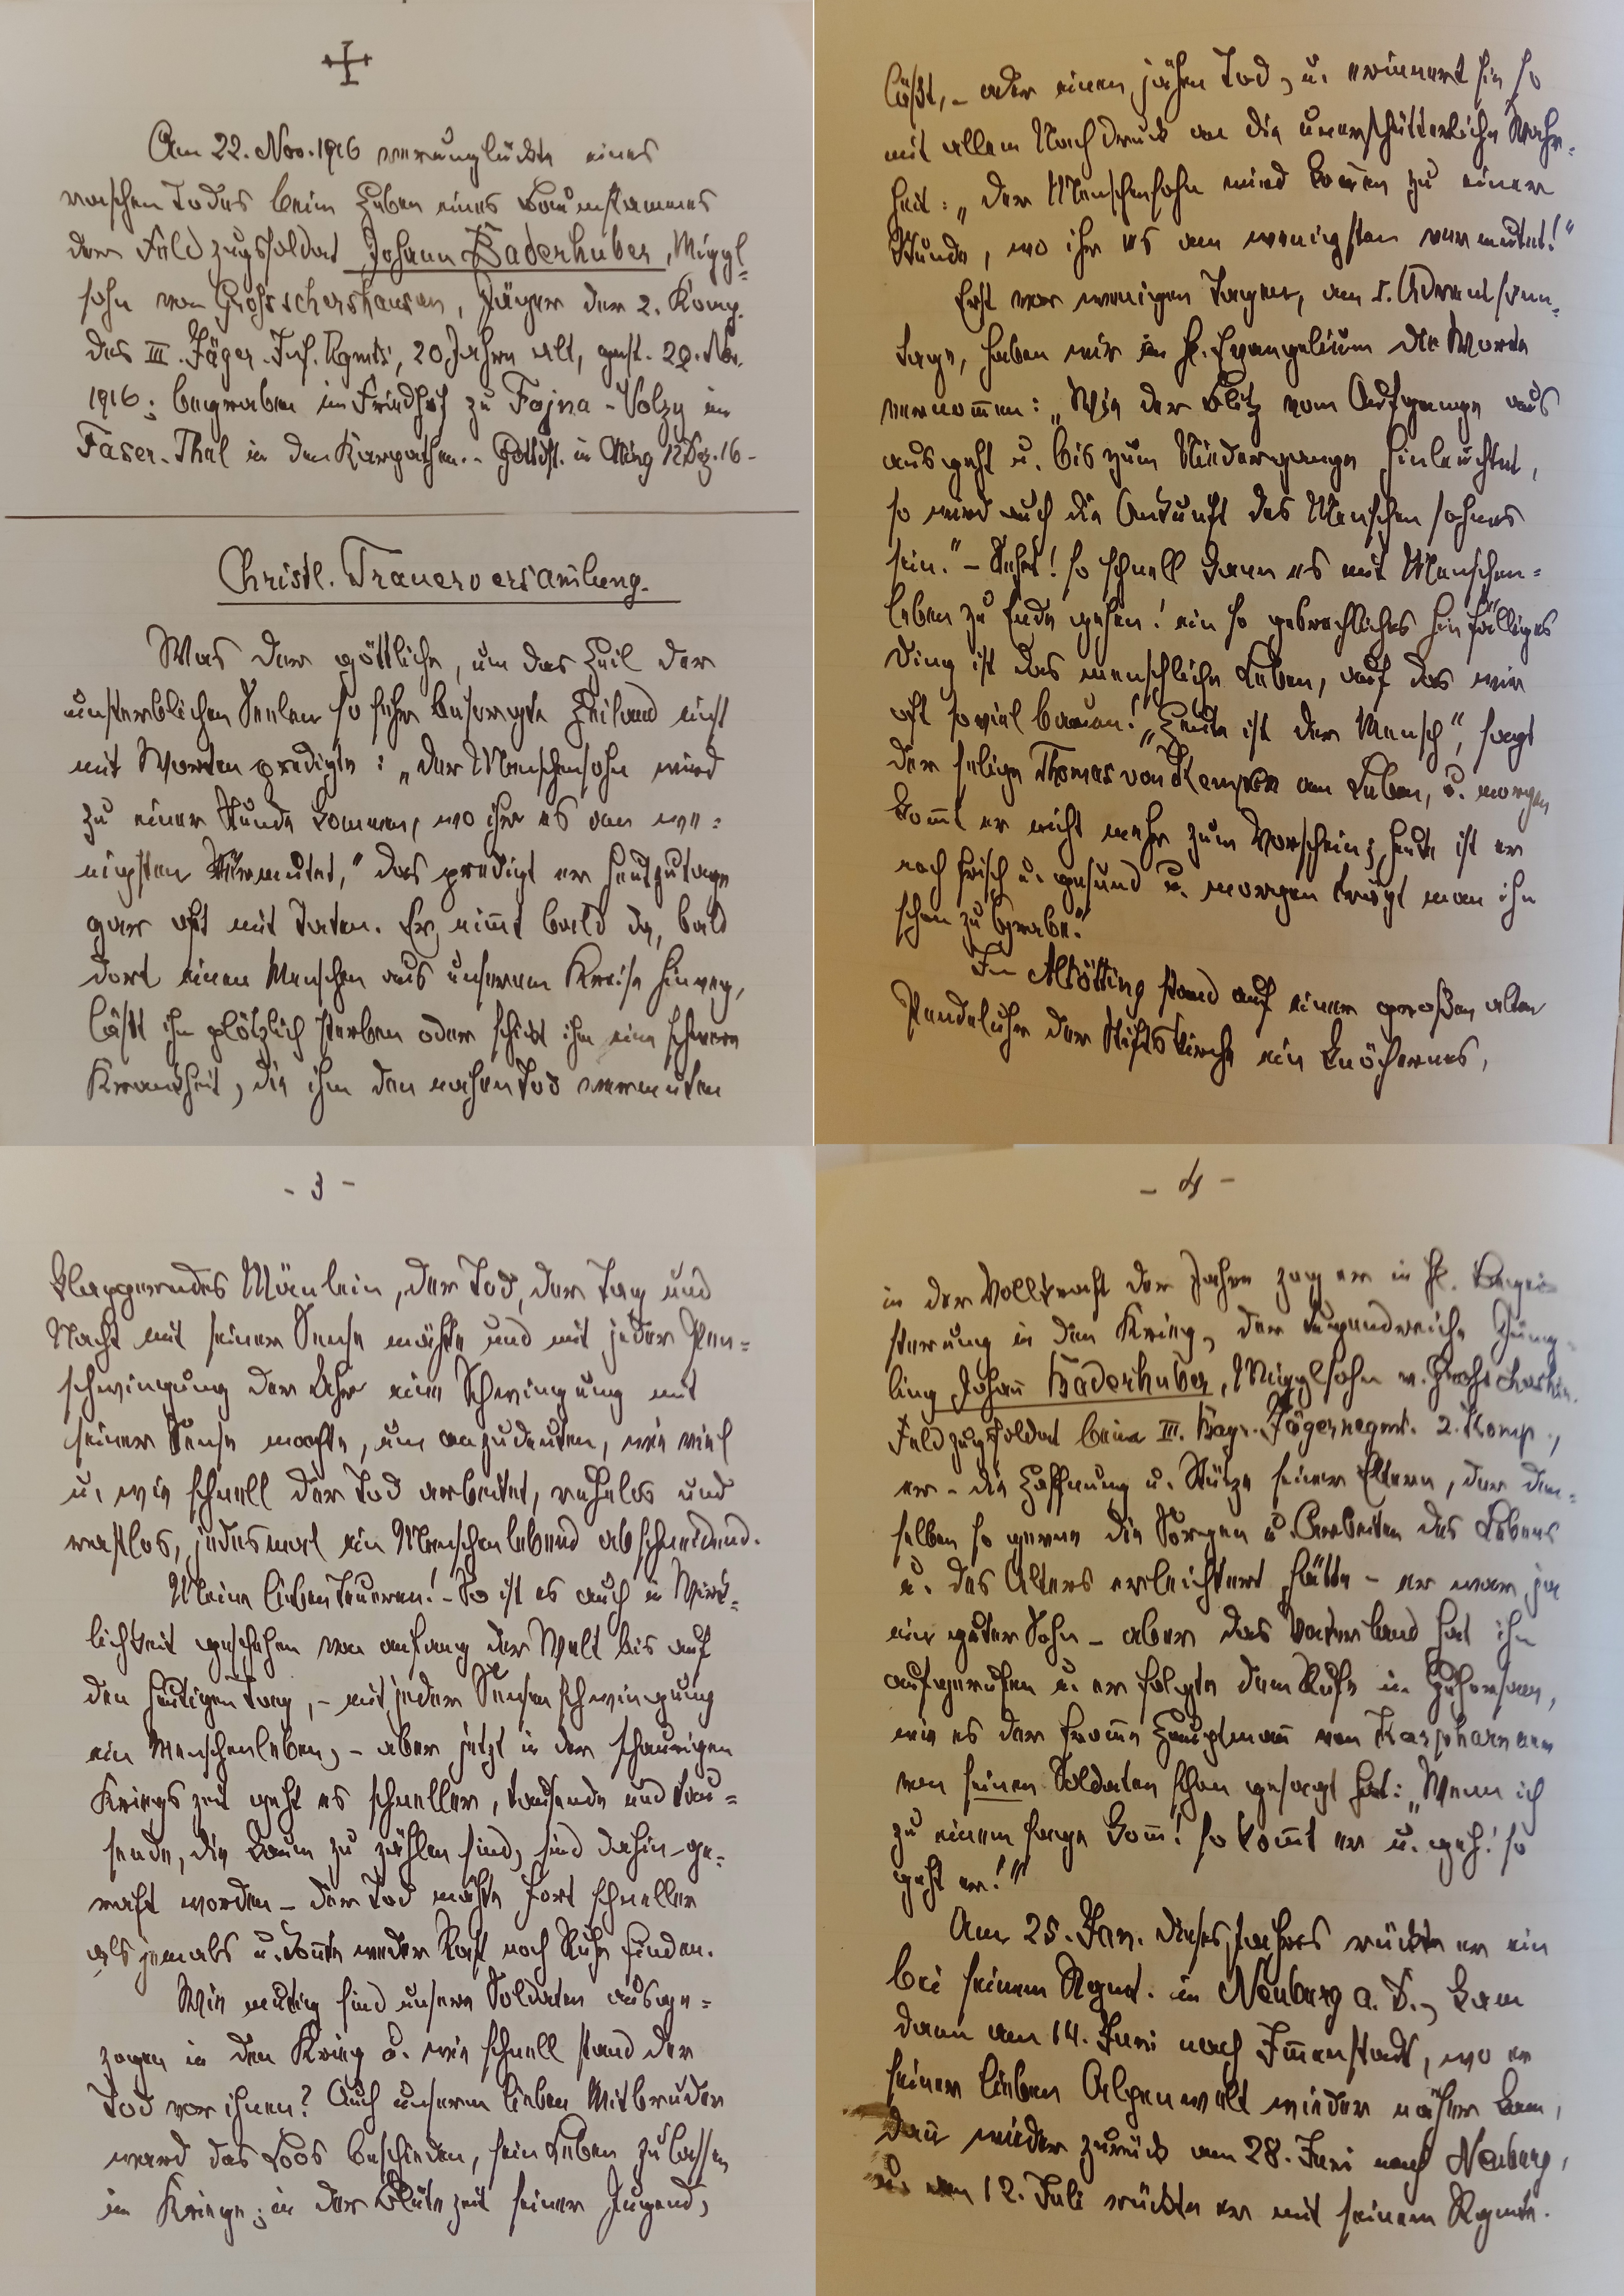 Am 22. Nov. 1916 verunglückte eines
raschen Todes beim Heben eines Baumstammes
der Feldzugssoldat Johann Baderhuber, Miggl-
sohn von Grossschershausen, Jäger der 2. Komp.
des III. Jäger-Inf. Rgmts, 20 Jahre alt, gest. 22. Nov.
1916; begraben im Friedhof zu Fojna-Volzy im
Faser-Thal in den Karpathen. - Gottdst. in 12 Dez. 16 -
Christl. Trauerversam̅lung.
Was der göttliche, um das Heil der
unsterblichen Seelen so sehr besorgte Heiland einst
mit Worten predigte: „der Menschensohn wird
zu einer Stunde kommen, wo ihr es am we-
nigsten vermutet," das predigt er heutzutage
gar oft mit Taten. Er nim̅t bald da, bald
dort einen Menschen aus unserem Kreise hinweg,
läßt ihn plötzlich sterben oder schickt ihm eine schwere
Krankheit, die ihm den nahen Tod vermuten
läßt, - oder einen jähen Tod, u. erinnert hin so
mit allem Nachdruck an die unerschütterliche Wahr-
heit: „der Menschensohn wird kom̅en zu einer
Stunde, wo ihr es am wenigsten vermutet!"
Erst vor wenigen Tagen, am I. Adventsonn-
tage, haben wir im hl. Evangelium die Worte
vernom̅en: „Wie der Blitz vom Aufgange aus
ausgeht u. bis zum Niedergange hinleuchtet,
so wird auch die Ankunft des Menschensohnes
sein." - Sehet! so schnell kann es mit Menschen-
leben zu Ende gehen! ein so gebrechliches hinfälliges
Ding ist das menschliche Leben, auf das wir
oft soviel bauen! „Heute ist der Mensch", sagt
der selige Thomas von Kempen am Leben, u. morgen
kom̅t er nicht mehr zum Vorschein; heute ist er
noch frisch u. gesund u. morgen trägt man ihn
schon zu Grabe."
In Altötting stand auf einer großen alten
Pendeluhr der Stiftskirche ein knöchernes,
- 3 -
klapperndes Mänlein, der Tod, der Tag und
Nacht mit seiner Sense mähte und mit jeder Pen-
schwingung der Uhr eine Schwingung mit
seiner Sense machte, um anzudeuten, wie viel
u. wie schnell der Tod arbeitet, ruhelos und
rastlos, jedesmal ein Menschenlebend abschneidend.
Meine lieben Teueren! - So ist es auch in Wirk-
lichkeit geschehen von anfang der Welt bis auf
den heutigen Tag, - mit jeder Sensenschwingung
ein Menschenleben, - aber jetzt in der schaurigen
Kriegszeit geht es schneller, tausende und tau-
sende, die kaum zu zählen sind, sind dahin-ge-
raft worden - der Tod mähte fort schneller
als jemals u. kon̅te weder Rast noch Ruhe finden.
Wie mutig sind unsere Soldaten ausge-
zogen in den Krieg u. wie schnell stand der
Tod vor ihnen? Auch unserm lieben Mitbruder
ward das Loos beschieden, sein Leben zu lassen
im Kriege; in der Blütezeit seiner Jugend,
- 4 -
in der Vollkraft der Jahre zog er in hl. Begei-
sterung in den Krieg, der tugendreiche Jüng-
ling Johan̅ Baderhuber, Migglsohn v.
Feldzugssoldat beim III. Bayr. Jägerregmt. 2. Komp.,
er - die Hoffnung u. Stütze seiner Eltern, der den-
selben so gerne die Sorgen u. Arbeiten des Lebens
u. des Alters erleichtert hätte - er war ja
ein guter Sohn - aber das Vaterland hat ihn
aufgerufen u. er folgte dem Rufe in Gehorsam,
wie es der from̅e Hauptman̅ von Kapharnaum
von seinen Soldaten schon gesagt hat: „Wenn ich
zu einem sage kom̅! so kom̅t er u. geh! so
geht er!"
Am 25. Jan. dieses Jahres rückte er ein
bei seinem Rgmt. in Neuburg a. D., kam
dann am 14. Juni nach Im̅enstadt, wo er
seiner lieben Alpenwelt wieder näher kam,
dan̅ wieder zurück am 28. Juni nach Neuburg,
u. am 12. Juli rückte er mit seinem Rgmte.